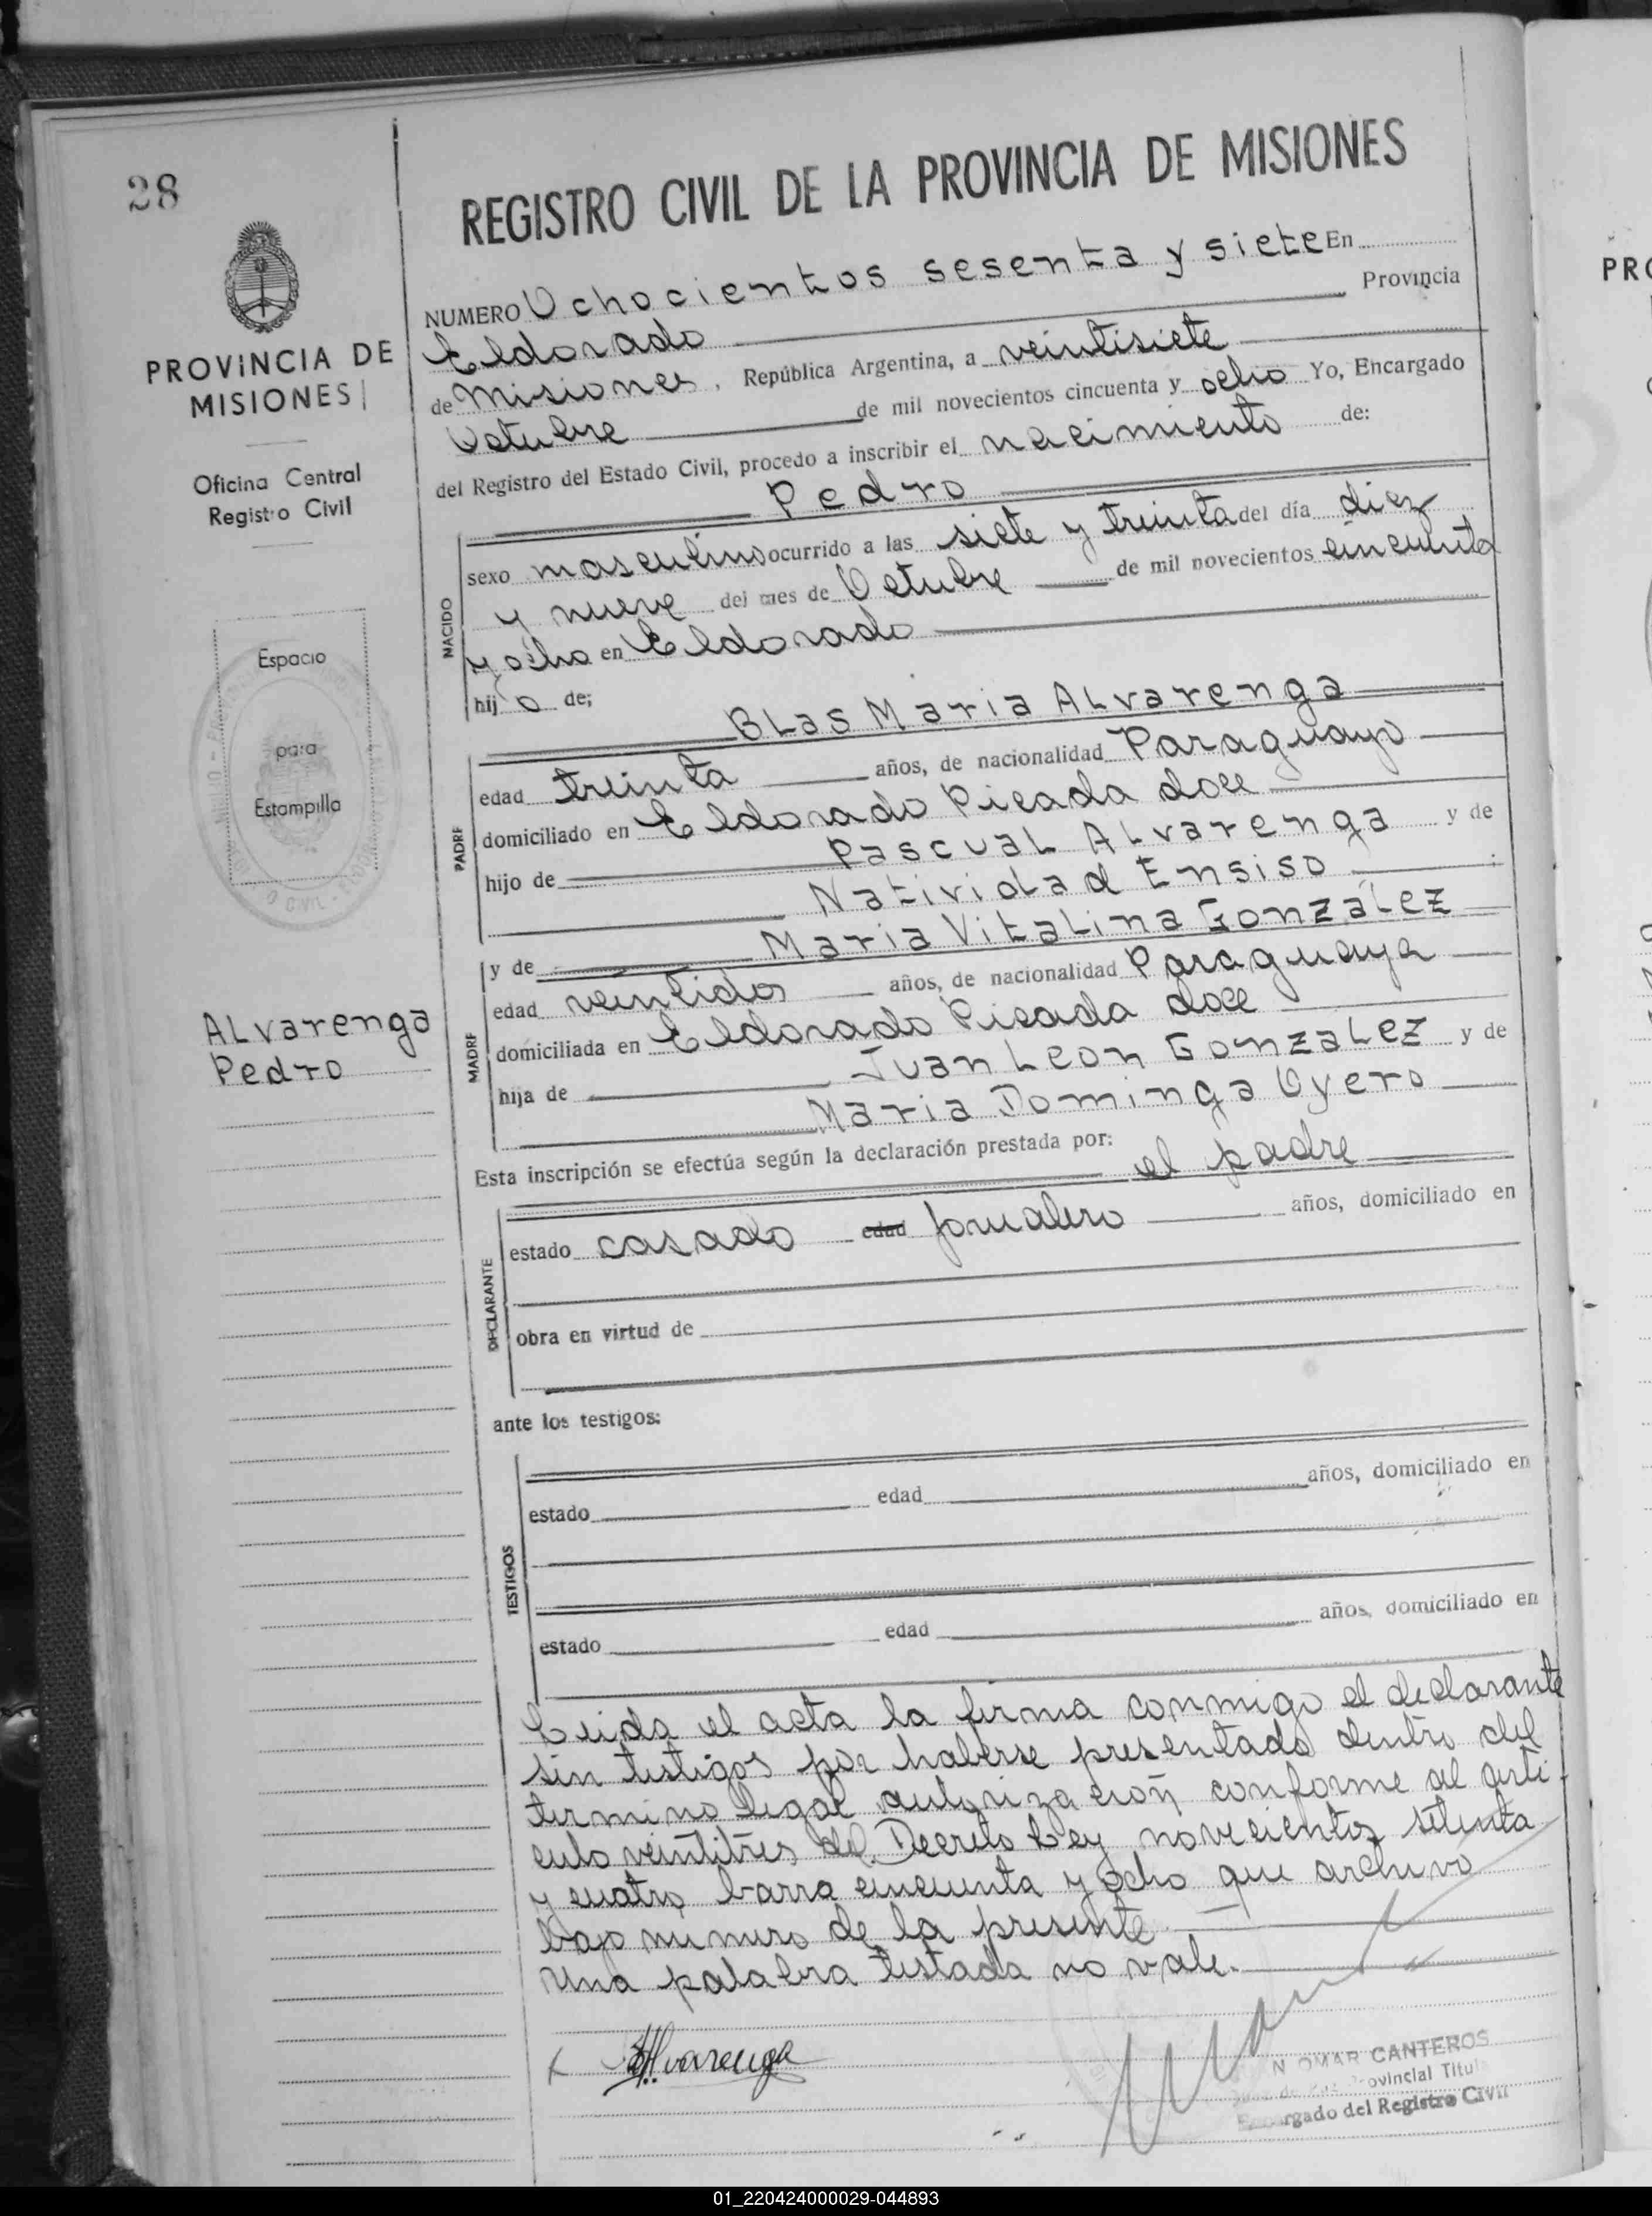 28
REGISTRO CIVIL DE LA PROVINCIA DE MISIONES
PROVINCIA DE
MISIONES
Oficina Central
Registro Civil
Espacio
para
Estampilla
Alvarenga
Pedro
NUMERO Ochocientos sesenta y siete En
Eldorado Provincia
de Misiones, República Argentina, a veintisiete
Octubre de mil novecientos cincuenta y ocho Yo, Encargado
del Registro del Estado Civil, procedo a inscribir el nacimiento de:
Pedro
NACIDO
sexo masculino ocurrido a las siete y treinta del día diez
y nueve del mes de Octubre de mil novecientos cincuenta
y ocho en Eldorado
hijo de;
Blas Maria Alvarenga
PADRE
edad treinta años, de nacionalidad Paraguayo
domiciliado en Eldorado Picada doce
hijo de Pascual Alvarenga y de
Natividad Ensiso ;
y de Maria Vitalina González
MADRE
edad veintidos años, de nacionalidad Paraguaya
domiciliada en Eldorado Picada doce
hija de Juan Leon Gonzalez y de
Maria Dominga Oyero
Esta inscripción se efectúa según la declaración prestada por:
el padre
DECLARANTE
estado casado edad jornalero años, domiciliado en
obra en virtud de
ante los testigos:
TESTIGOS
estado edad años, domiciliado en
estado edad años, domiciliado en
Leida el acta la firma conmigo el declarante
sin testigos por haberse presentado dentro del
termino legal autorización conforme al arti-
culo veintitres del Decreto Ley novecientos setenta
y cuatro barra cincuenta y ocho que archivo
bajo numero de la presente.
Una palabra testada no vale.
BAlvarenga
N OMAR CANTEROS
Provincial Titul
Encargado del Registro Civil
PRO
01_220424000029-044893